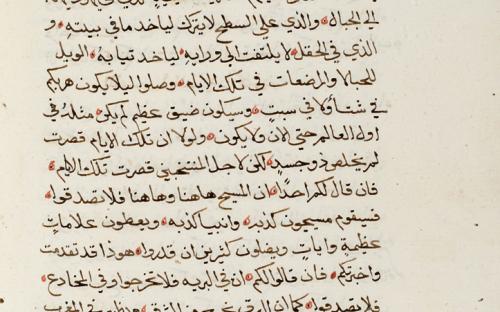 الي الجبال والذي علي السطح لا ينزل لياخد ما في بيته و
الذي في الحقل لا يلتفت الي ورايه لياخد تيابه الويل
للحبالا والمرضعات في تلك الايام وصلوا ليلا يكون هربكم
في شتا ولا في سبت وسيكون ضيق عظيم لم يكون مثله في
اول العالم حتي الان ولا يكون ولولا ان تلك الايام قصرت
لم يخلص ذو جسد لكن لاجل المنتخبين قصرت تلك الايام
فان قال لكم احدا ان المسيح هاهنا وهاهنا فلا تصدقوا
فسيقوم مسيحيون كذبه وانبيا كذبه ويعطون علامات
عظيمة وايات ويضلون كثيرين ان قدروا هوذا قد تقدمت
واخبرتكم فان قالوا لكم ان في البريه فلا تخرجوا وفي المخادع
فلا تصدقوا كما ان البرق يخرج من المشرق